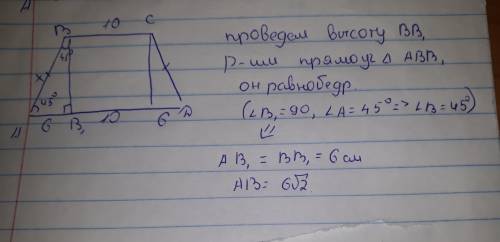 10
B C
45°
45°
A 6 B₁ 10 6 D
проведем высоту BB₁
р-им прямоуг Δ ABB₁
он равнобедр.
(∠B₁=90, ∠A=45°=>∠B=45°)
⇓
AB₁ = BB₁ = 6 см
AB= 6√2